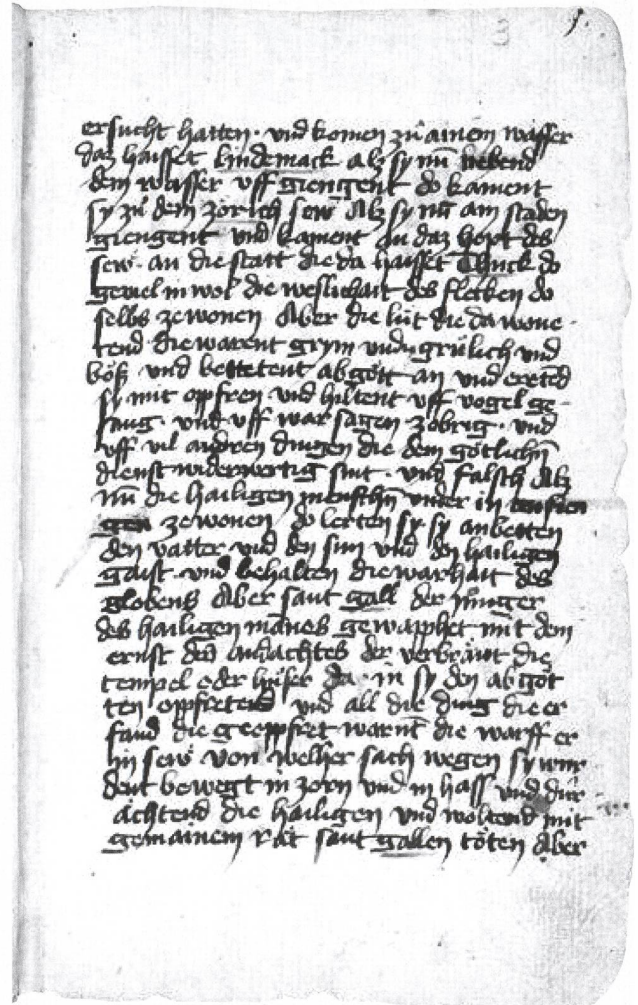 ersucht hatten · vnd komen zů ainem wasser
daz haisset lindemack alz sy nū nebend
dem wasser vff giengent do kament
sy zů dem zorich sew Alz sy nū am staden
giengent vnd kament an daz hopt des
sew · an die statt die da haisset Thuck do
geviel in wol die weslichait des flecken do
selbs ze wonen Aber die lüt die da wone
tend die warent grym vnd grülich vnd
böß vnd bettetent abgött an vnd eretēd
sy mit oppfren vnd hiltent vff vogel ge
sang · vnd vff war sagen · zobrig · vnd
vff vil andren dingen die dem götlichn
dienst widerwertig sint · vnd falsch Alz
nū die hailigen menschn vnder in
gen ze wonen do lerten sy sy anbetten
den vatter vnd den sun vnd den hailigen
gaist · vnd behalten die warhait des
globens Aber sant gall der junger
des hailigen mānes gewapphet mit dem
ernst des andachtes der verbrānt die
tempel oder hüser da in sy den abgöt
ten oppfretend vnd all die ding die er
fand die geopfret warnt die warff er
in sew von welher sach wegen sy wur
dent bewegt in zorn vnd in hass vnd dur
ächtend die hailigen vnd woltend mit
gemainem rät sant gallen töten Aber